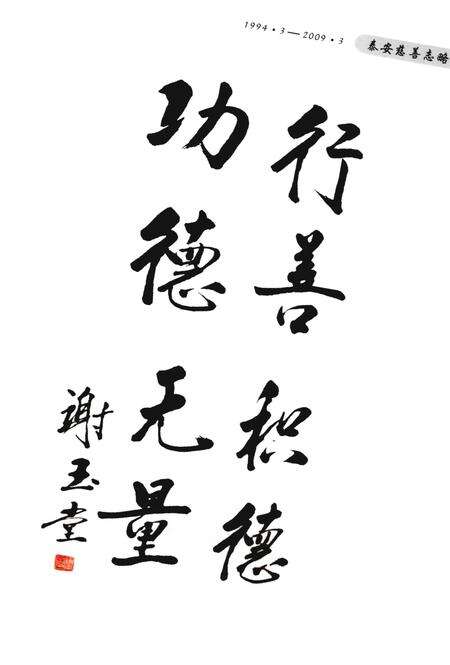 1994·3—2009·3
泰安慈善志略
行善积德
功德无量
谢玉堂